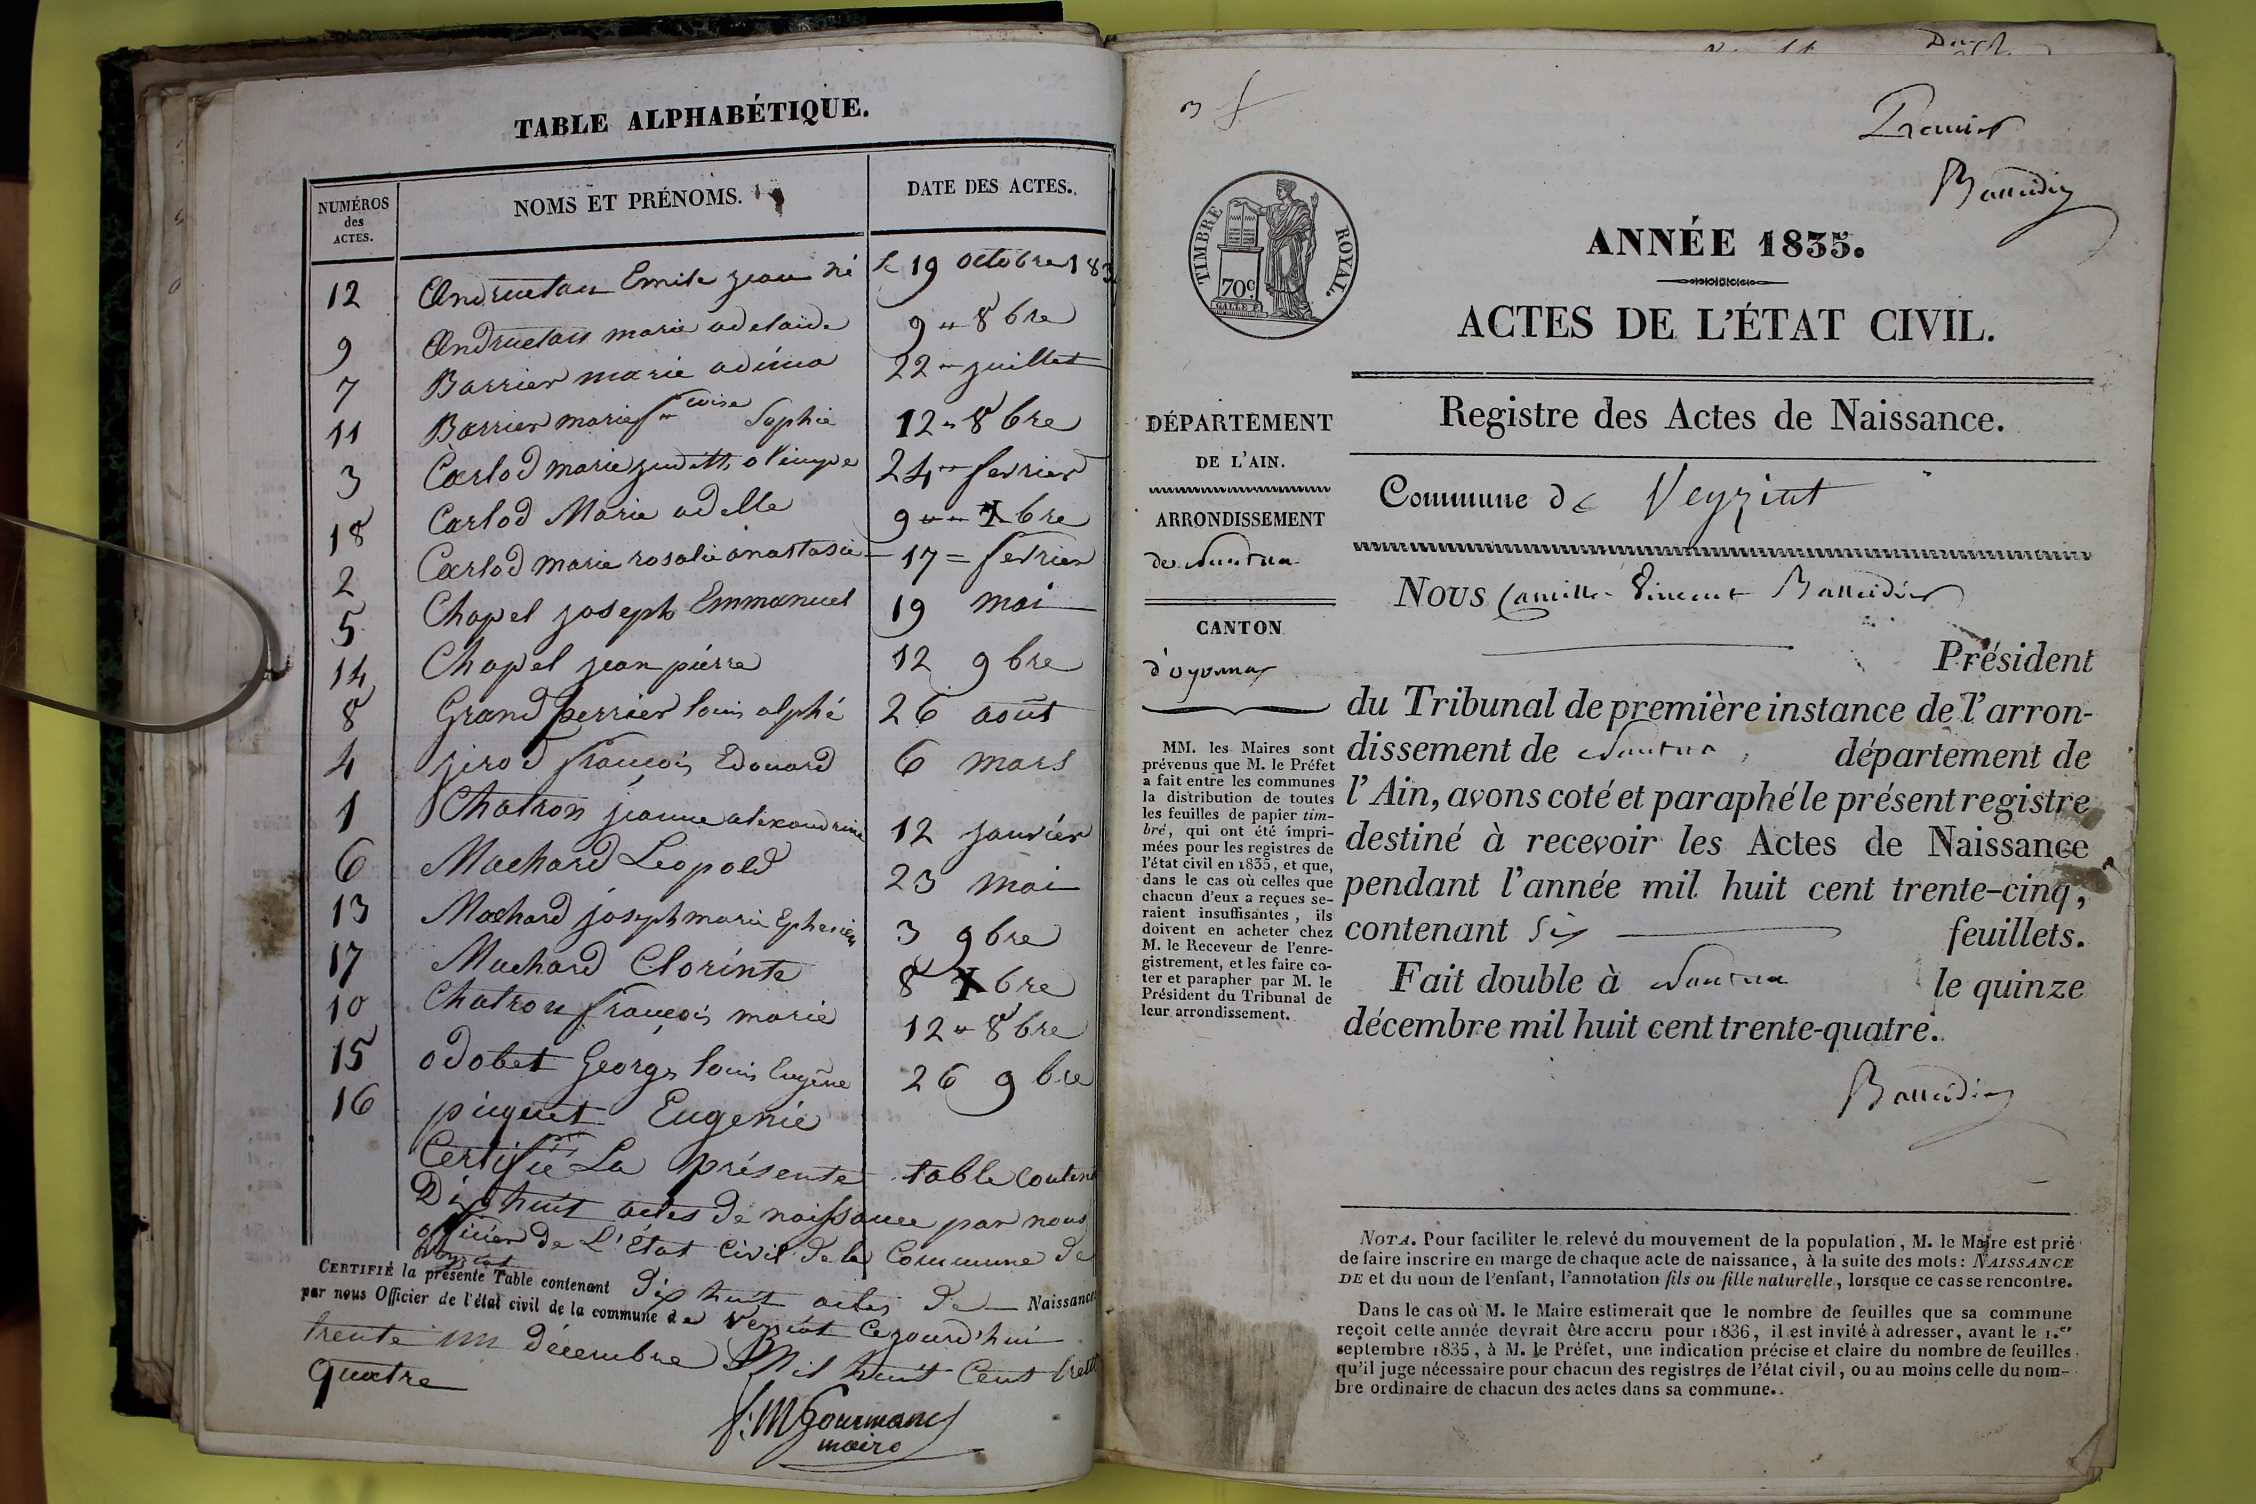 TABLE ALPHABÉTIQUE.
NUMÉROS
des
ACTES.
NOMS ET PRÉNOMS.
DATE DES ACTES.
12 Andruetan Emile jean né le 19 octobre 183
9 Andruetan marie adelaide 9 " 8bre
7 Barrier marie adina 22 " juillet
11 Barrier marie fcoise Sophie 12 " 8bre
3 Carlod marie juditth olimpe 24 " fevrier
18 Carlod Marie adelle 9 " Xbre
2 Carlod marie rosalie anastasie 17 = fevrier
5 Chapel joseph Emmanuel 19 mai
14 Chapel jean pierre 12 9bre
8 Grand perrier louis alphé 26 août
4 jirod françois Edouard 6 mars
1 Chatron jeanne alexandrine 12 janvier
6 Machard Leopold 23 mai
13 Machard joseph marie 3 9bre
17 Machard Clorinte 8 Xbre
10 Chatron françois marie 12 " 8bre
15 odobet Georges louis Eugène 26 9bre
16 piquet Eugenie
Certifié La présente table conten
Dix huit actes de naissance par nous
officier de L'État Civil de la Commune de
Veyziat
CERTIFIÉ la présente Table contenant dix huit actes de Naissance
par nous Officier de l'état civil de la commune de Veyziat Cejourd'hui
trente un décembre Mil huit Cent trente
quatre
f. M Gourmand
maire
3
Premier
Baudin
TIMBRE ROYAL.
70c
ANNÉE 1835.
ACTES DE L'ÉTAT CIVIL.
Registre des Actes de Naissance.
DÉPARTEMENT
DE L'AIN.
ARRONDISSEMENT
de Nantua
CANTON
d'oyonnax
MM. les Maires sont
prévenus que M. le Préfet
a fait entre les communes
la distribution de toutes
les feuilles de papier tim-
bré, qui ont été impri-
mées pour les registres de
l'état civil en 1835, et que,
dans le cas où celles que
chacun d'eux a reçues se-
raient insuffisantes, ils
doivent en acheter chez
M. le Receveur de l'enre-
gistrement, et les faire co-
ter et parapher par M. le
Président du Tribunal de
leur arrondissement.
Commune de Veyziat
Nous Camille Vincent
Président
du Tribunal de première instance de l'arron-
dissement de Nantua, département de
l'Ain, avons coté et paraphé le présent registre
destiné à recevoir les Actes de Naissance
pendant l'année mil huit cent trente-cinq,
contenant Six feuillets.
Fait double à Nantua le quinze
décembre mil huit cent trente-quatre.
NOTA. Pour faciliter le relevé du mouvement de la population, M. le Maire est prié
de faire inscrire en marge de chaque acte de naissance, à la suite des mots: NAISSANCE
DE et du nom de l'enfant, l'annotation fils ou fille naturelle, lorsque ce cas se rencontre.
Dans le cas où M. le Maire estimerait que le nombre de feuilles que sa commune
reçoit cette année devrait être accru pour 1836, il est invité à adresser, avant le 1.er
septembre 1835, à M. le Préfet, une indication précise et claire du nombre de feuilles
qu'il juge nécessaire pour chacun des registres de l'état civil, ou au moins celle du nom-
bre ordinaire de chacun des actes dans sa commune.